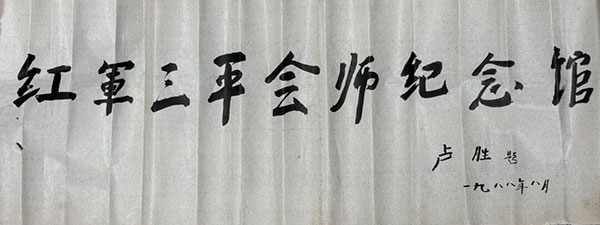 红軍三平会师纪念馆
卢胜题
一九八八年八月